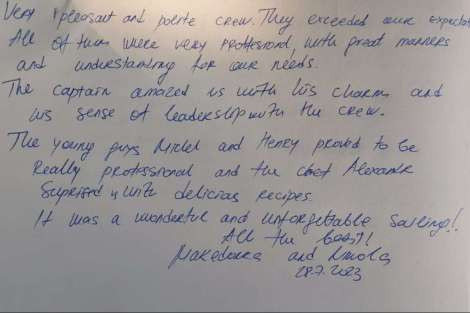 Very pleasant and polite crew. They exceeded our expectat
All of them were very proffesional, with great manners
and understanding for our needs.
The captain amazed us with his charm and
his sense of leadership with the crew.
The young guys Michel and Henry proved to be
Really proffessional and the chef Alexandr
Suprised us with delicious recipes.
It was a wonderful and unforgettable sailing!!
All the best!!
and
28.7.2023